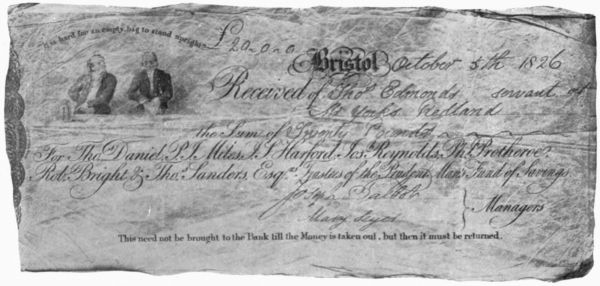 It is hard for an empty bag to stand upright.
£20-0-0
Bristol October 5th 1826
Received of Thos Edmonds servant at
Mr Yorks Redland
the Sum of Twenty Pounds
For Tho. Daniel, P. J. Miles, J. S. Harford, Jos. Reynolds, Ph. Protheroe,
Rob. Bright & Tho. Sanders, Esqrs. Trustees of the Prudent Man's Fund of Savings.
Joseph Talbot
Mary
Managers
This need not be brought to the Bank till the Money is taken out, but then it must be returned.